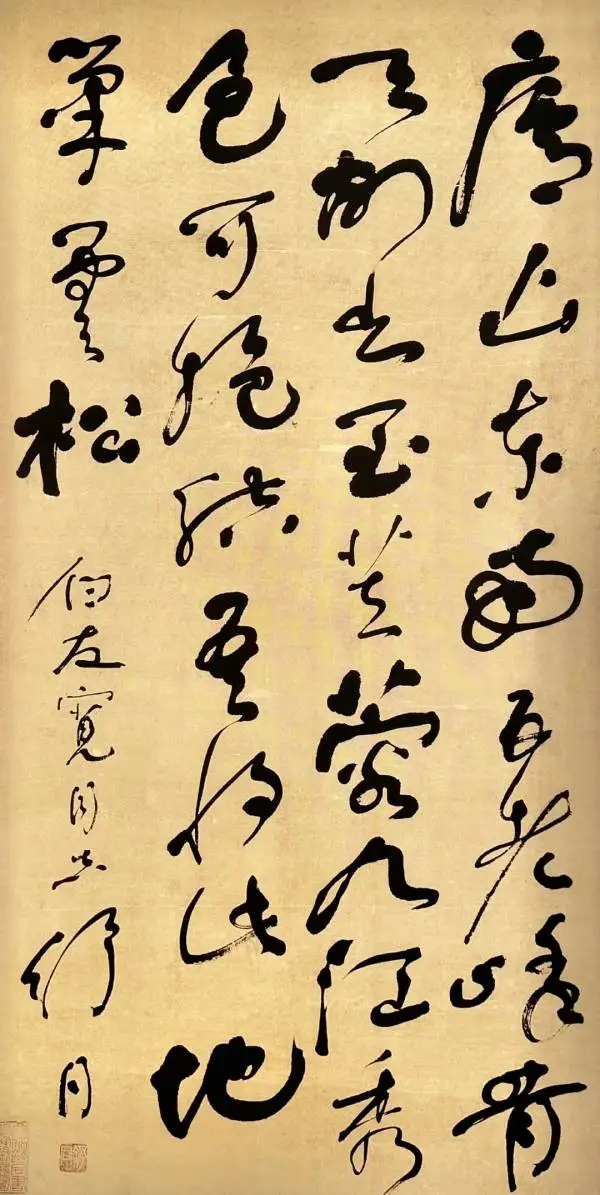 廬山東南五老峰青
天削出金芙蓉九江秀
色可挹結吾將此地
巢雲松 友寬